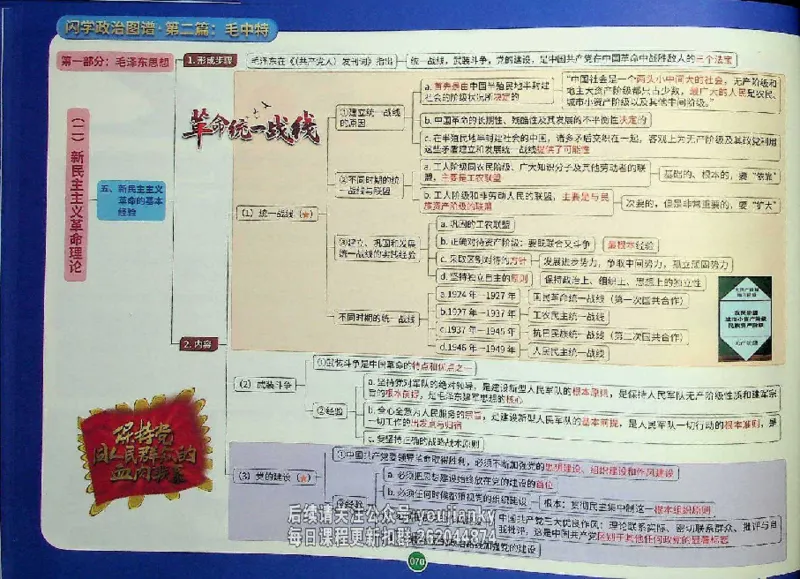 闪学政治图谱·第二篇：毛中特
第一部分：毛泽东思想
（二）新民主主义革命理论
五、新民主主义
革命的基本
经验
1. 形成步骤
毛泽东在《〈共产党人〉发刊词》指出
统一战线，武装斗争，党的建设，是中国共产党在中国革命中战胜敌人的三个法宝
2. 内容
革命统一战线
（1）统一战线（☆）
①建立统一战线
的原因
a. 首先是由中国半殖民地半封建
社会的阶级状况所决定的
“中国社会是一个两头小中间大的社会，无产阶级和
地主大资产阶级都只占少数，最广大的人民是农民、
城市小资产阶级以及其他中间阶级。”
b. 中国革命的长期性、残酷性及其发展的不平衡性决定的
c. 在半殖民地半封建社会的中国，诸多矛盾交织在一起，客观上为无产阶级及其政党利用
这些矛盾建立和发展统一战线提供了可能性
②不同时期的统
一战线与联盟
a. 工人阶级同农民阶级、广大知识分子及其他劳动者的联
盟，主要是工农联盟
基础的、根本的，要“依靠”
b. 工人阶级和非劳动人民的联盟，主要是与民
族资产阶级的联盟
次要的，但是非常重要的，要“扩大”
③建立、巩固和发展
统一战线的实践经验
a. 巩固的工农联盟
b. 正确对待资产阶级：要既联合又斗争
最根本经验
c. 采取区别对待的方针
发展进步势力，争取中间势力，孤立顽固势力
d. 坚持独立自主的原则
保持政治上、组织上、思想上的独立性
不同时期的统一战线
a. 1924 年 —1927 年
国民革命统一战线（第一次国共合作）
b. 1927 年 —1937 年
工农民主统一战线
c. 1937 年 —1945 年
抗日民族统一战线（第二次国共合作）
d. 1946 年 —1949 年
人民民主统一战线
农民阶级
城市小资产阶级
民族资产阶级
（2）武装斗争
①武装斗争是中国革命的特点和优点之一
②经验
a. 坚持党对军队的绝对领导，是建设新型人民军队的根本原则，是保持人民军队无产阶级性质和建军宗
旨的根本前提，是毛泽东建军思想的核心
b. 全心全意为人民服务的宗旨，是建设新型人民军队的基本前提，是人民军队一切行动的根本准则，是
一切工作的出发点与归宿
c. 要坚持正确的战略战术原则
保持党
同人民群众的
血肉联系
（3）党的建设（☆）
①中国共产党要领导革命取得胜利，必须不断加强党的思想建设、组织建设和作风建设
②经验
a. 必须把思想建设始终放在党的建设的首位
b. 必须在任何时候都重视党的组织建设
根本：贯彻民主集中制这一根本组织原则
中国共产党三大优良作风：理论联系实际、密切联系群众、批评与自
我批评，这是中国共产党区别于其他任何政党的显著标志
加强党的建设
后续请关注公众号 youjianky
每日课程更新扣群 262044874
070